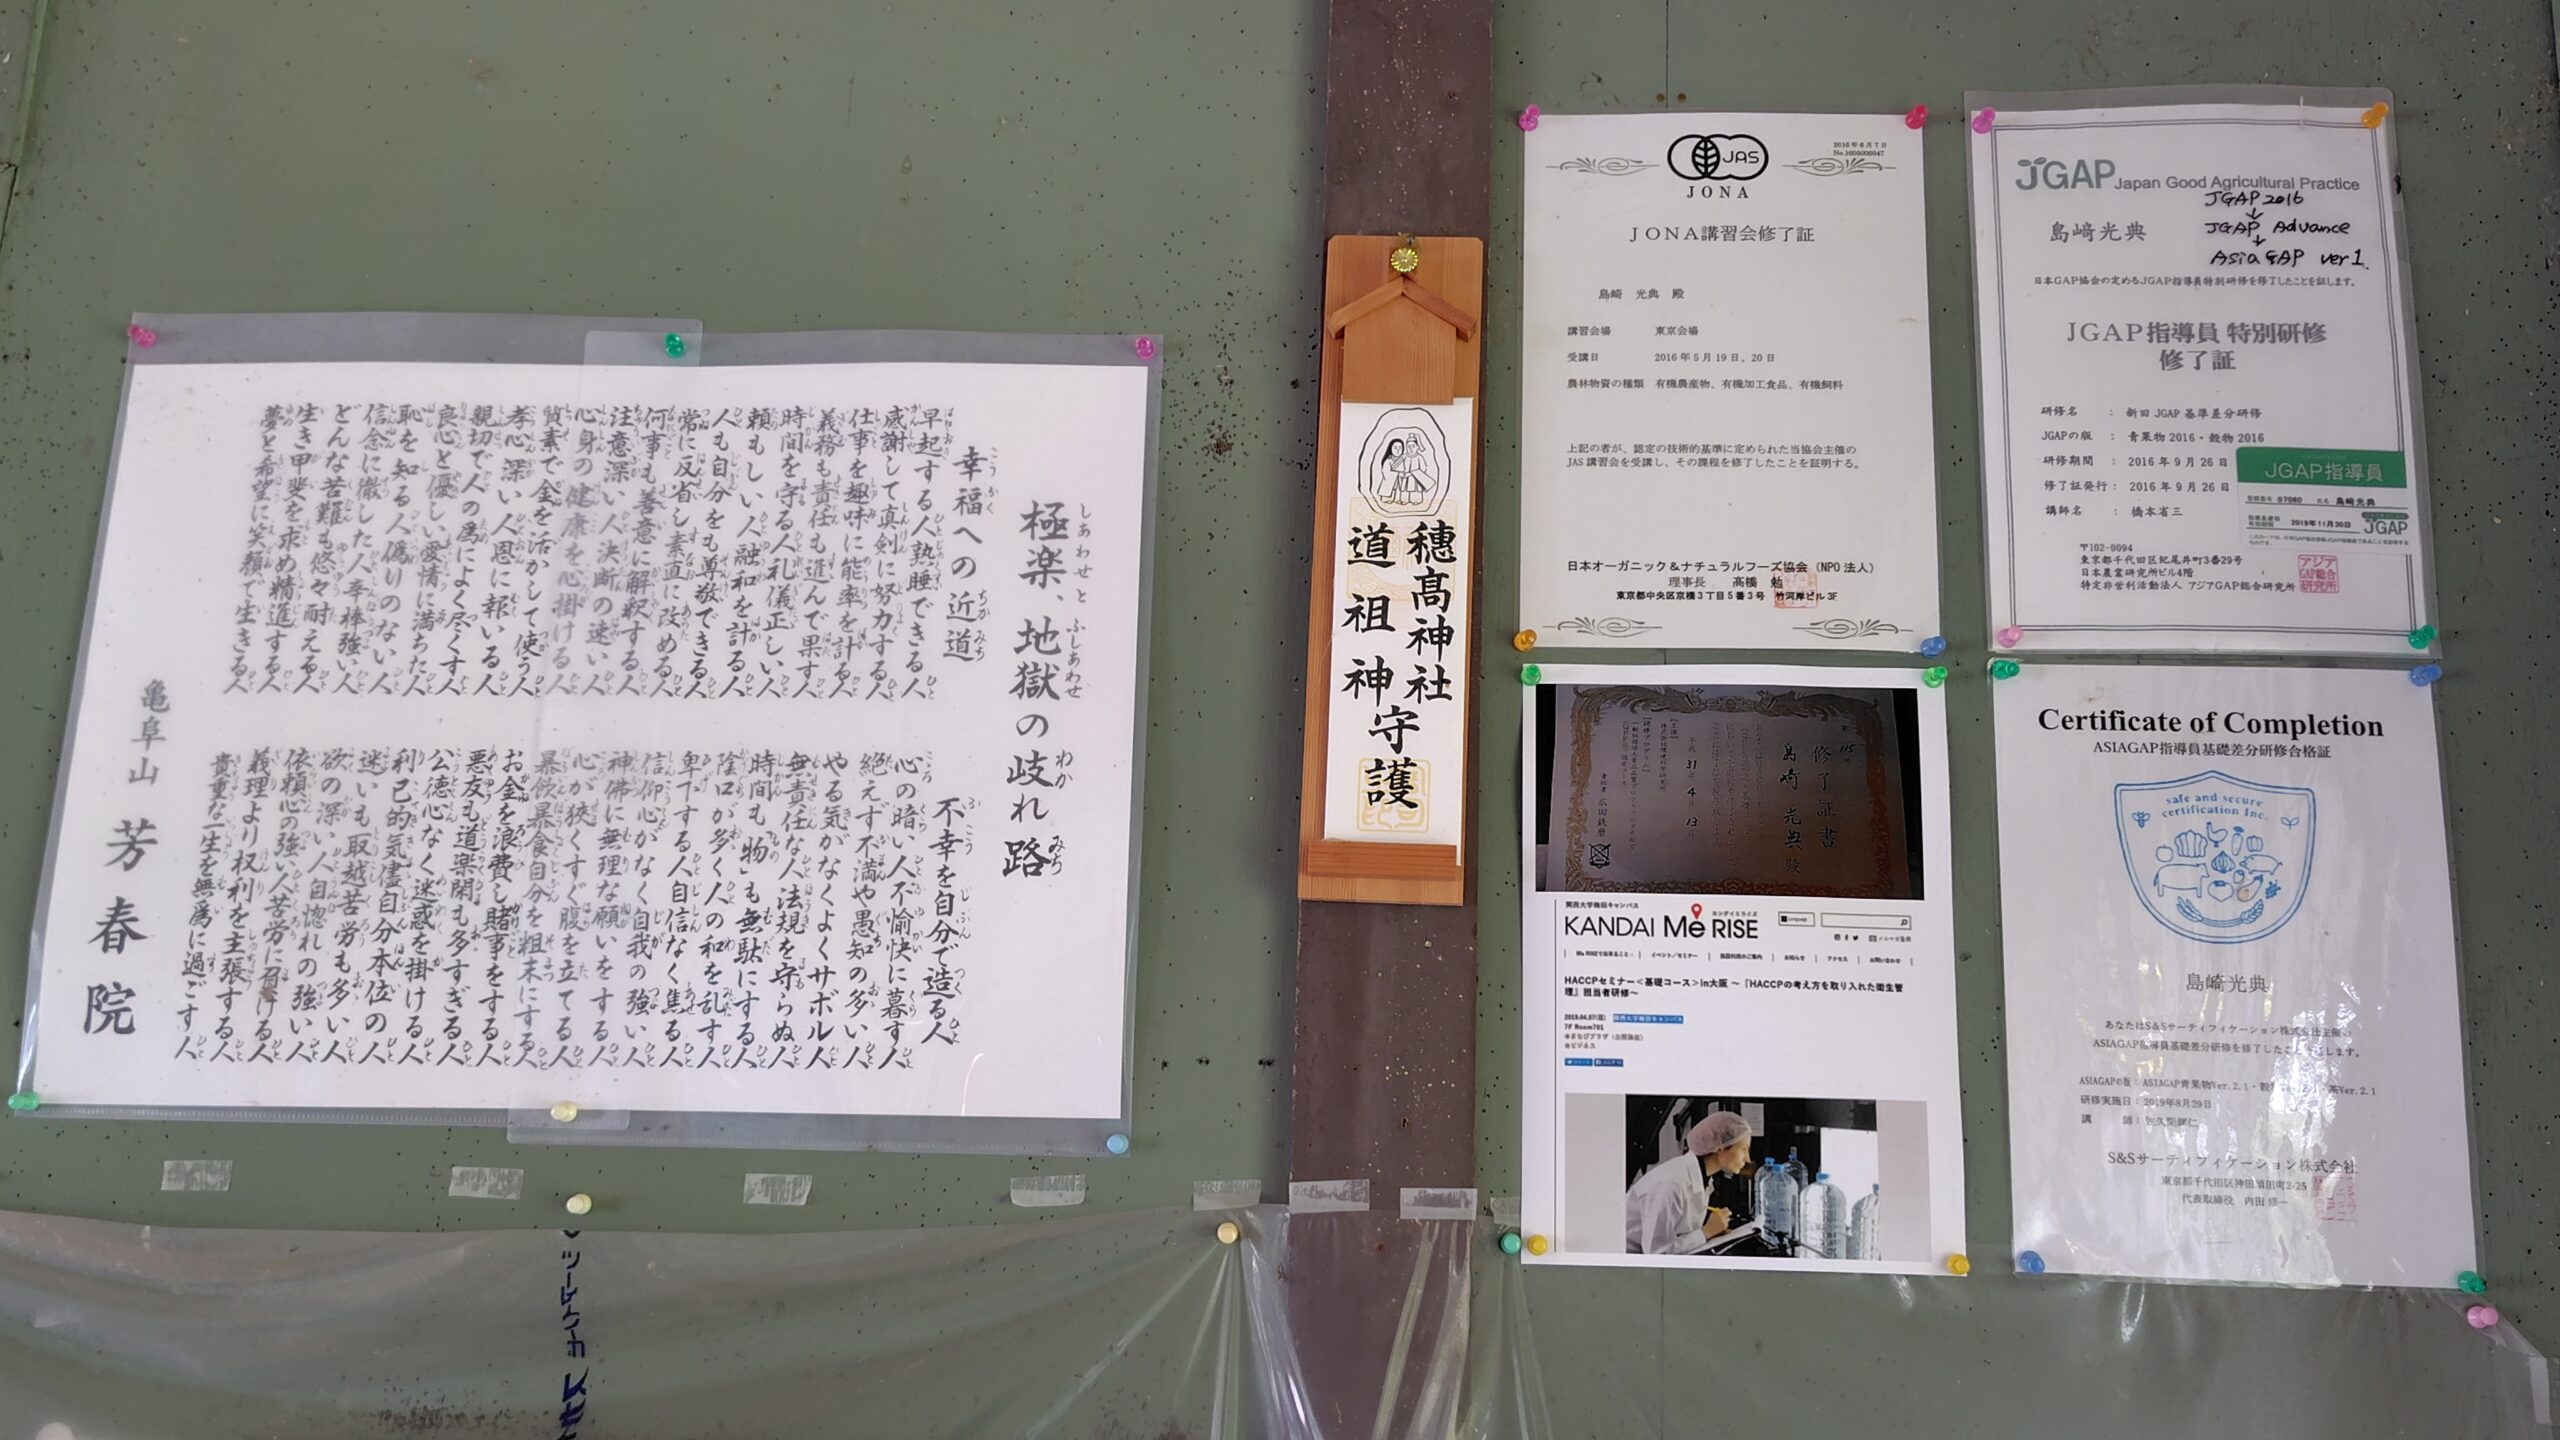 極楽、地獄の岐れ路
幸福への近道
早起する人熟睡できる人
感謝して真剣に努力する人
仕事を趣味に能率を計る人
義務も責任も進んで果す人
時間を守る人礼儀正しい人
頼もしい人融和を計る人
人も自分をも尊敬できる人
常に反省し素直に改める人
何事も善意に解釈する人
注意深い人決断の速い人
心身の健康を心掛ける人
質素で金を活かして使う人
孝心深い人恩に報いる人
親切で人の為によく尽くす人
良心と優しい愛情に満ちた人
恥を知る人偽りのない人
信念に徹した人辛棒強い人
どんな苦難も悠々耐える人
生き甲斐を求め精進する人
夢と希望に笑顔で生きる人
不幸を自分で造る人
心の暗い人不愉快に暮す人
絶えず不満や愚知の多い人
やる気がなくよくサボル人
無責任な人法規を守らぬ人
時間も「物」も無駄にする人
陰口が多く人の和を乱す人
卑下する人自信なく焦る人
信仰心がなく自我の強い人
神佛に無理な願いをする人
心が狭くすぐ腹を立てる人
暴飲暴食自分を粗末にする人
お金を浪費し賭事をする人
悪友も道楽閑も多すぎる人
公徳心なく迷惑を掛ける人
利己的気儘自分本位の人
迷いも取越苦労も多い人
欲の深い人自惚れの強い人
依頼心の強い人苦労に負ける人
義理より権利を主張する人
貴重な一生を無為に過ごす人
亀阜山 芳春院
穂髙神社
道祖神守護
JAS
JONA
2016年6月7日
JONA講習会修了証
島崎 光典 殿
講習会場 東京会場
受講日 2016年5月19日、20日
農林物資の種類 有機農産物、有機加工食品、有機飼料
上記の者が、認定の技術的基準に定められた当協会主催の
JAS講習会を受講し、その課程を修了したことを証明する。
日本オーガニック＆ナチュラルフーズ協会（NPO法人）
理事長 髙橋 勉
東京都中央区京橋3丁目5番3号 竹河岸ビル3F
JGAP Japan Good Agricultural Practice
JGAP 2016
↓
JGAP Advance
↓
Asia GAP ver 1.
島﨑光典
日本GAP協会の定めるJGAP指導員特別研修を修了したことを証します。
JGAP指導員 特別研修
修了証
研修名 ： 新旧JGAP基準差分研修
JGAPの版 ： 青果物2016・穀物2016
研修期間 ： 2016年9月26日
修了証発行： 2016年9月26日
講師名 ： 橋本省三
JGAP指導員
07080 氏名 島﨑光典
2019年11月30日
JGAP
〒102-0094
東京都千代田区紀尾井町3番29号
日本農業研究所ビル4階
特定非営利活動法人 アジアGAP総合研究所
アジア
GAP総合
研究所
第115号
修了証書
島崎 光典 殿
平成31年4月13日
関西大学梅田キャンパス
KANDAI Me RISE
Language
Me RISEで出来ること
イベント/セミナー
施設利用のご案内
お知らせ
アクセス
お問い合わせ
HACCPセミナー＜基礎コース＞in大阪 ～『HACCPの考え方を取り入れた衛生管
理』担当者研修～
2019.04.07(日) 関西大学梅田キャンパス
7F Room701
Certificate of Completion
ASIAGAP指導員基礎差分研修合格証
safe and secure
certification Inc.
島﨑光典
あなたはS&Sサーティフィケーション株式会社主催の
ASIAGAP指導員基礎差分研修を修了したこと
します。
ASIAGAPの版： ASIAGAP青果物Ver.2.1・穀 茶Ver.2.1
研修実施日： 2019年8月29日
講 師：
S&Sサーティフィケーション株式会社
東京都千代田区神田須田町2-25
代表取締役 内田 修一